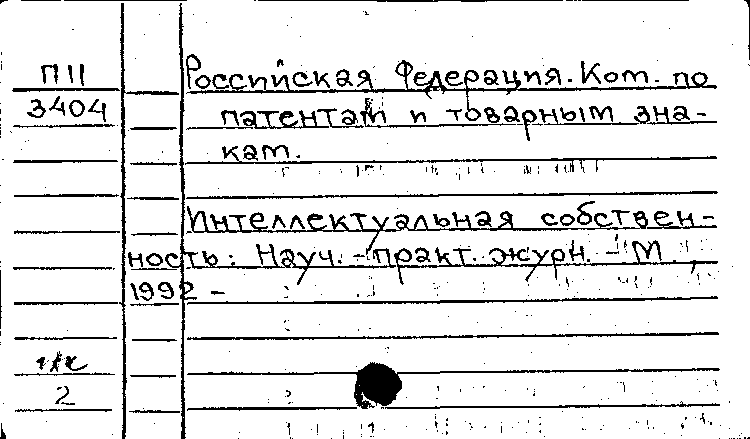 П 11
3404
Российская Федерация. Ком. по
патентам и товарным зна-
кам.
Интеллектуальная собствен-
ность: Науч.-практ. журн. - М.,
1992 -
2